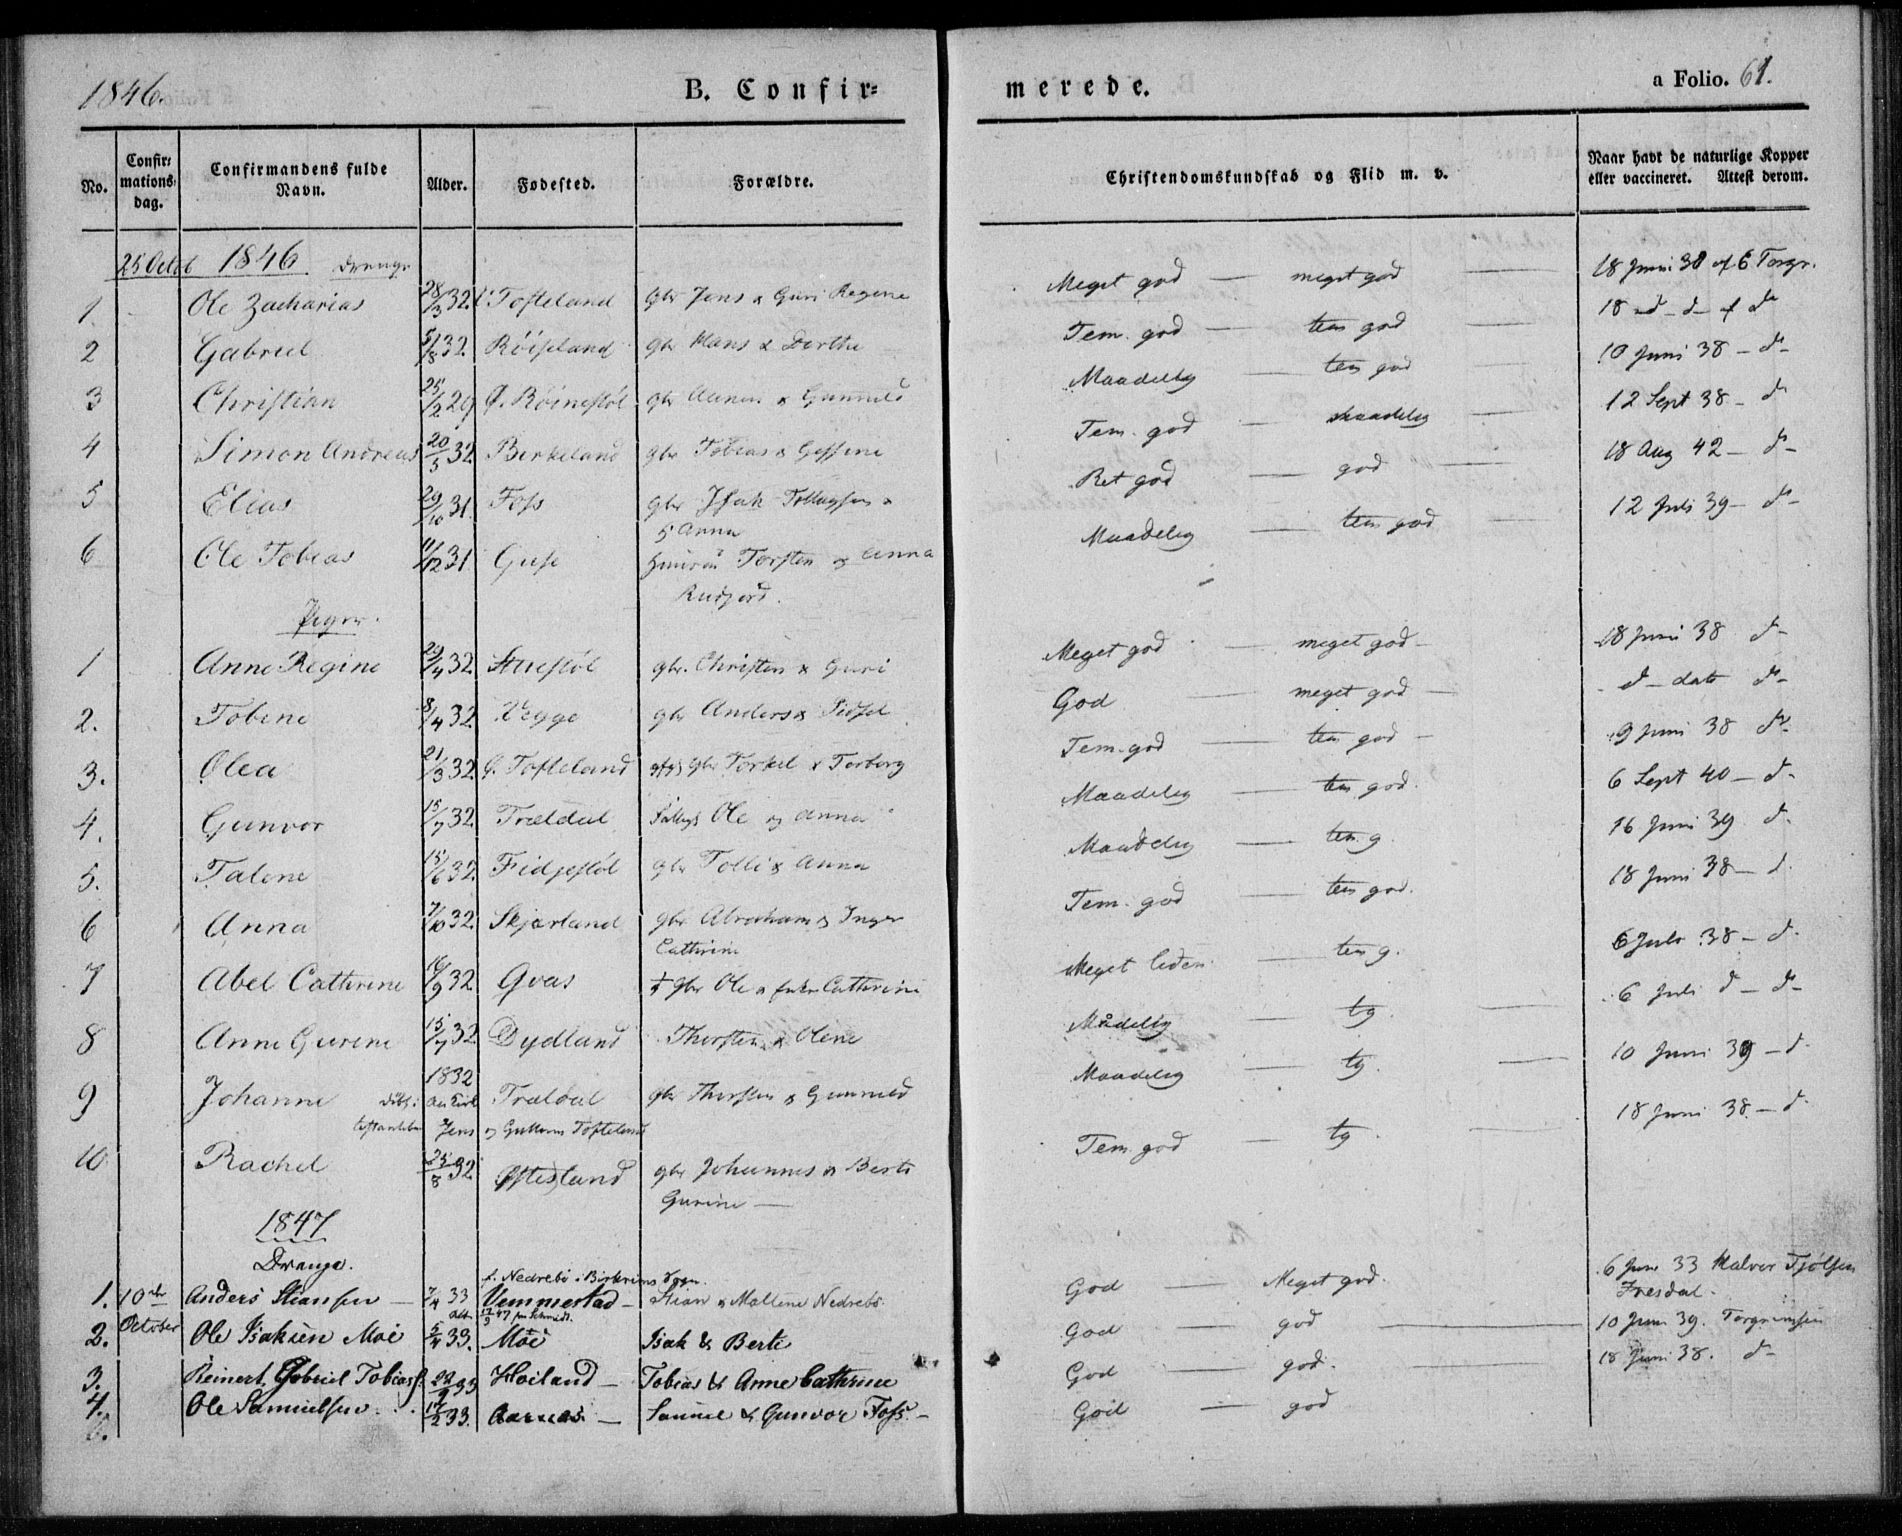 1846.
B. Confir=
merede.
a Folio. 61.
No.
Confir= mations= dag.
Confirmandens fulde Navn.
Alder.
Fødested.
Forældre.
Christendomskundskab og Flid m. v.
Naar havt de naturlige Kopper eller vaccineret. Attest derom.
25 Octob 1846 Drenge
1 Ole Zacharias 28/3 32 Tofteland gbr Jens & Guri Regine Meget god — meget god 18 Juni 38 af 6 Torgr.
2 Gabriel 5/8 32. Røiseland gbr Hans & Dorthe Tem. god — tem god — 18 d – d – af d
3 Christian 25/2 29 Ø. Røinestøl gbr Aanen & Gunnild Maadelig — tem god 10 Juni 38 – d –
4 Simon Andreas 20/5 32 Birkeland gbr Tobias & Gessine Tem. god — maadelig — 12 Sept 38 – d
5 Elias 29/10 31. Foss gbr Isak Tollagsen & Anna Ret god — god — 18 Aug 42 – d –
6 Ole Tobias 11/12 31. Guse Torsten og Anna Rudjord. Maadelig — tem god — 12 Juli 39 – d –
Piger.
1 Anne Regine 29/4 32 Stuestøl gbr. Christen & Guri Meget god — meget god – 18 Juni 38 d –
2. Tobine 8/4 32. Vegge gbr Anders & Sidsel God — meget god — d – dato d –
3. Olea 21/3 32. Ø. Tofteland gbr Torkel & Torborg Tem. god — tem god – 9 Juni 38 d.
4. Gunvor 15/7 32. Trældal Ole og Anna Maadelig — tem god. 6 Sept 40 – d.
5. Talene 15/6 32. Fidjestøl gbr Tolli & Anna Maadelig — tem g. 16 Juni 39 d.
6 Anna 7/10 32. Skjerland gbr Abraham & Inger Cathrine Tem. god — tem god. 18 Juni 38 – d.
7 Abel Cathrine 16/9 32 Gvas † gbr Ole & Enke Cathrine Meget liden — tem g. 6 Juli 38 – d.
8 Anne Gurine 15/7 32 Dydland Thorsten & Olene Mådelig — tg. 6 Juli d – d –
9 Johanne 1832 Trældal gbr Thorsten & Gunnild Maadelig — tg. 10 Juni 39 – d.
Jens og Tofteland
10 Rachel 25/8 32 Øftesland gbr Johannes & Berte Gurine — Tem god — tg. 18 Juni 38 – d.
1847
Drenge.
f. Nedrebø i Birkrems Sogn.
1. 10de Anders Stiansen — 7/4 33 Vemmestad – Stian & Maltene Nedrebø. God — Meget god. 6 Juni 33 Halvor Tjølsen
2. October Ole Isaksen Moi 5/4 33. Moi Isak & Berte God — god — 10 Juni 39. Torgrimsen
3. Reinert Gabriel Tobiass. 22/9 33 Høiland – Tobias & Anne Cathrine God — god. 18 Juni 38. d –
4. Ole Samuelsen 17/2 33. Aarnes – Samuel & Gunvor Foss. – God — god